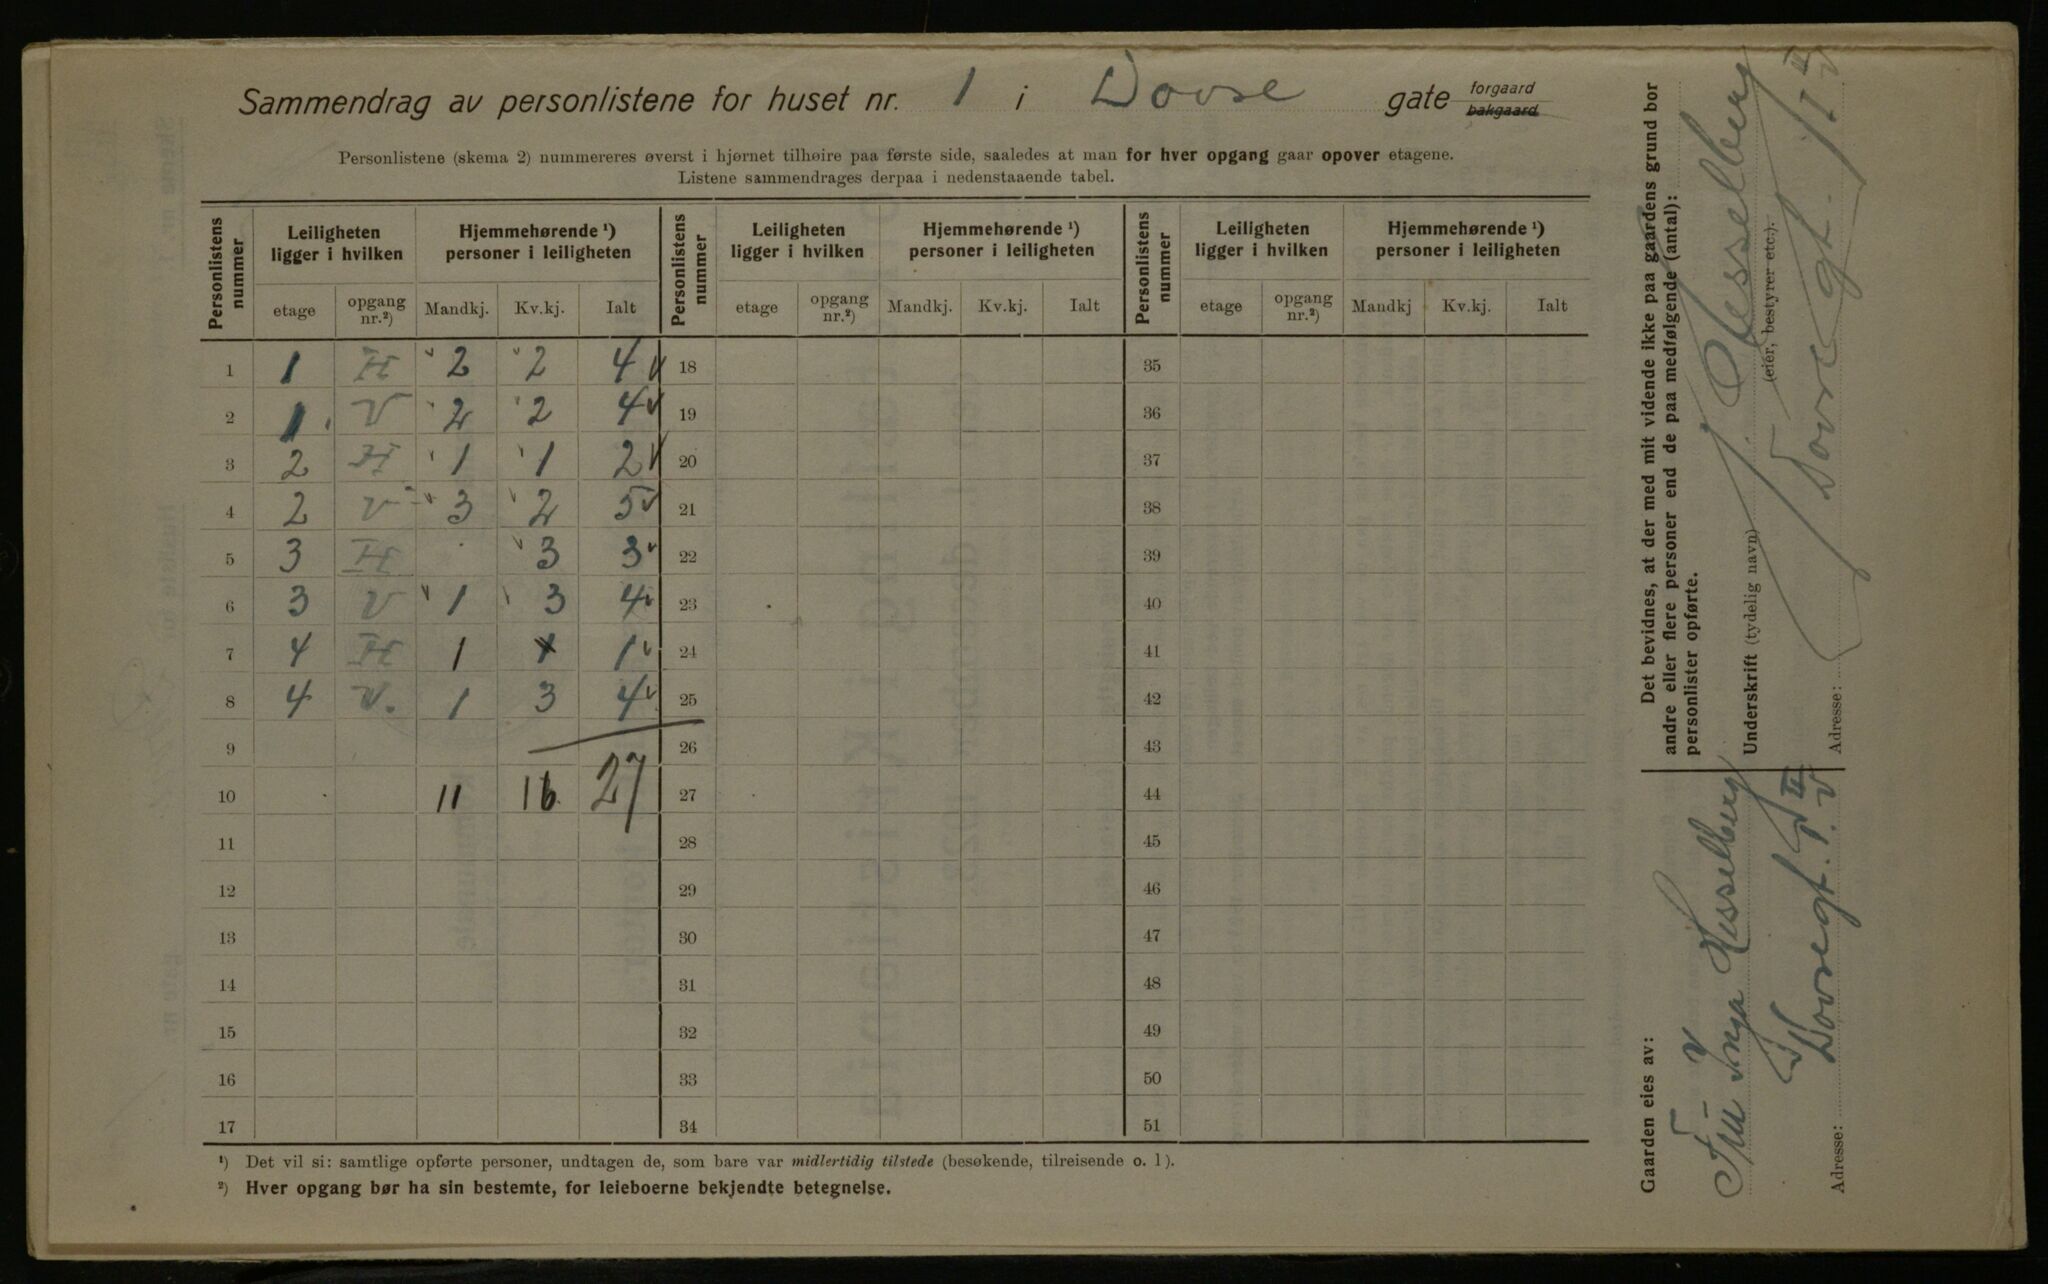 Sammendrag av personlistene for huset nr. 1 i Dovre gate forgaard bakgaard
Personlistene (skema 2) nummereres øverst i hjørnet tilhøire paa første side, saaledes at man for hver opgang gaar opover etagene.
Listene sammendrages derpaa i nedenstaaende tabel.
Personlistens nummer | Leiligheten ligger i hvilken | Hjemmehørende ¹) personer i leiligheten | Personlistens nummer | Leiligheten ligger i hvilken | Hjemmehørende ¹) personer i leiligheten | Personlistens nummer | Leiligheten ligger i hvilken | Hjemmehørende ¹) personer i leiligheten
etage | opgang nr.²) | Mandkj. | Kv.kj. | Ialt | etage | opgang nr.²) | Mandkj. | Kv.kj. | Ialt | etage | opgang nr.²) | Mandkj | Kv.kj. | Ialt
1 1 H 2 2 4 18 35
2 1 V 2 2 4 19 36
3 2 H 1 1 2 20 37
4 2 V 3 2 5 21 38
5 3 H 3 3 22 39
6 3 V 1 3 4 23 40
7 4 H 1 1 24 41
8 4 V. 1 3 4 25 42
9 26 43
10 11 16 27 27 44
11 28 45
12 29 46
13 30 47
14 31 48
15 32 49
16 33 50
17 34 51
¹) Det vil si: samtlige opførte personer, undtagen de, som bare var midlertidig tilstede (besøkende, tilreisende o. l).
²) Hver opgang bør ha sin bestemte, for leieboerne bekjendte betegnelse.
Det bevidnes, at der med mit vidende ikke paa gaardens grund bor
andre eller flere personer end de paa medfølgende (antal):
personlister opførte.
Underskrift (tydelig navn) J. Hesselberg
(eier, bestyrer etc.).
Adresse: Dovregt. 1 III V
Gaarden eies av:
Fru Inga Hesselberg
Adresse: Dovregt. 1 III V